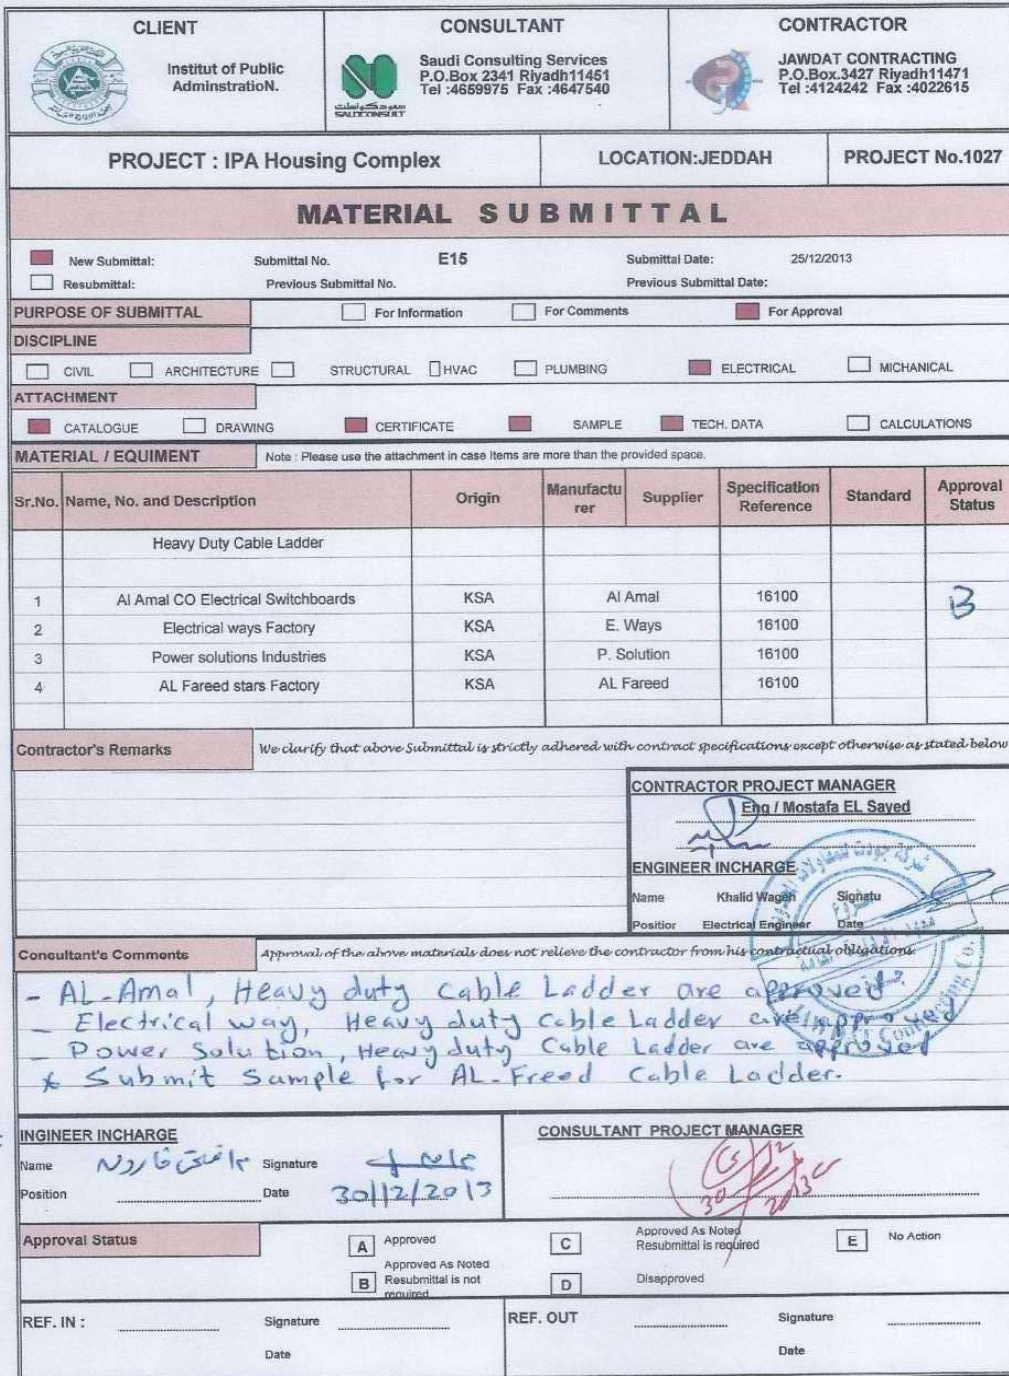 CLIENT
Institut of Public
AdminstratioN.
CONSULTANT
Saudi Consulting Services
P.O.Box 2341 Riyadh11451
Tel :4659975 Fax :4647540
سعودكونسلت
SAUDCONSULT
CONTRACTOR
JAWDAT CONTRACTING
P.O.Box.3427 Riyadh11471
Tel :4124242 Fax :4022615
PROJECT : IPA Housing Complex LOCATION:JEDDAH PROJECT No.1027
MATERIAL SUBMITTAL
New Submittal: Submittal No. E15 Submittal Date: 25/12/2013
Resubmittal: Previous Submittal No. Previous Submittal Date:
PURPOSE OF SUBMITTAL For Information For Comments For Approval
DISCIPLINE
CIVIL ARCHITECTURE STRUCTURAL HVAC PLUMBING ELECTRICAL MICHANICAL
ATTACHMENT
CATALOGUE DRAWING CERTIFICATE SAMPLE TECH. DATA CALCULATIONS
MATERIAL / EQUIMENT Note : Please use the attachment in case Items are more than the provided space.
Sr.No. Name, No. and Description Origin Manufacturer Supplier Specification Reference Standard Approval Status
Heavy Duty Cable Ladder
1 Al Amal CO Electrical Switchboards KSA Al Amal 16100 B
2 Electrical ways Factory KSA E. Ways 16100
3 Power solutions Industries KSA P. Solution 16100
4 AL Fareed stars Factory KSA AL Fareed 16100
Contractor's Remarks We clarify that above Submittal is strictly adhered with contract specifications except otherwise as stated below
CONTRACTOR PROJECT MANAGER
Eng / Mostafa EL Sayed
ENGINEER INCHARGE
Name Khalid Wageh Signatu
Positior Electrical Engineer Date
Consultant's Comments Approval of the above materials does not relieve the contractor from his contractual obligations.
- AL-Amal, Heavy duty Cable Ladder are approved.
- Electrical way, Heavy duty Cable Ladder are approved
- Power Solution, Heavy duty Cable Ladder are approved
* Submit Sample for AL-Freed Cable Ladder.
INGINEER INCHARGE CONSULTANT PROJECT MANAGER
Name Signature
Position Date 30/12/2013
30/12/2013
Approval Status
A Approved
B Approved As Noted
Resubmittal is not
required
C Approved As Noted
Resubmittal is required
D Disapproved
E No Action
REF. IN : Signature REF. OUT Signature
Date Date